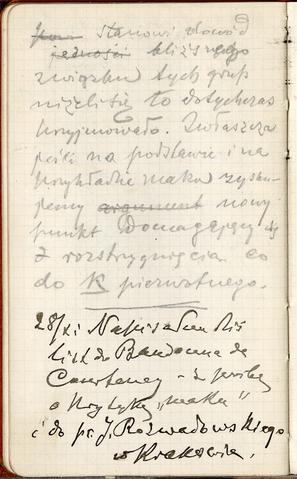 stanowi dowód
jedności bliższego
związku tych grup
niżeli się to dotychczas
przyjmowało. Zwłaszcza
jeśli na podstawie i na
przykładzie maku zyska-
punkt Domagający się
z rozstrzygnięcia co
do K pierwotnego.
28/XI Napisałem dziś
list do Baudouina de
Courtenay - z prośbą
o krytykę „maku"
i do pr. J. Rozwadowskiego
w Krakowie.